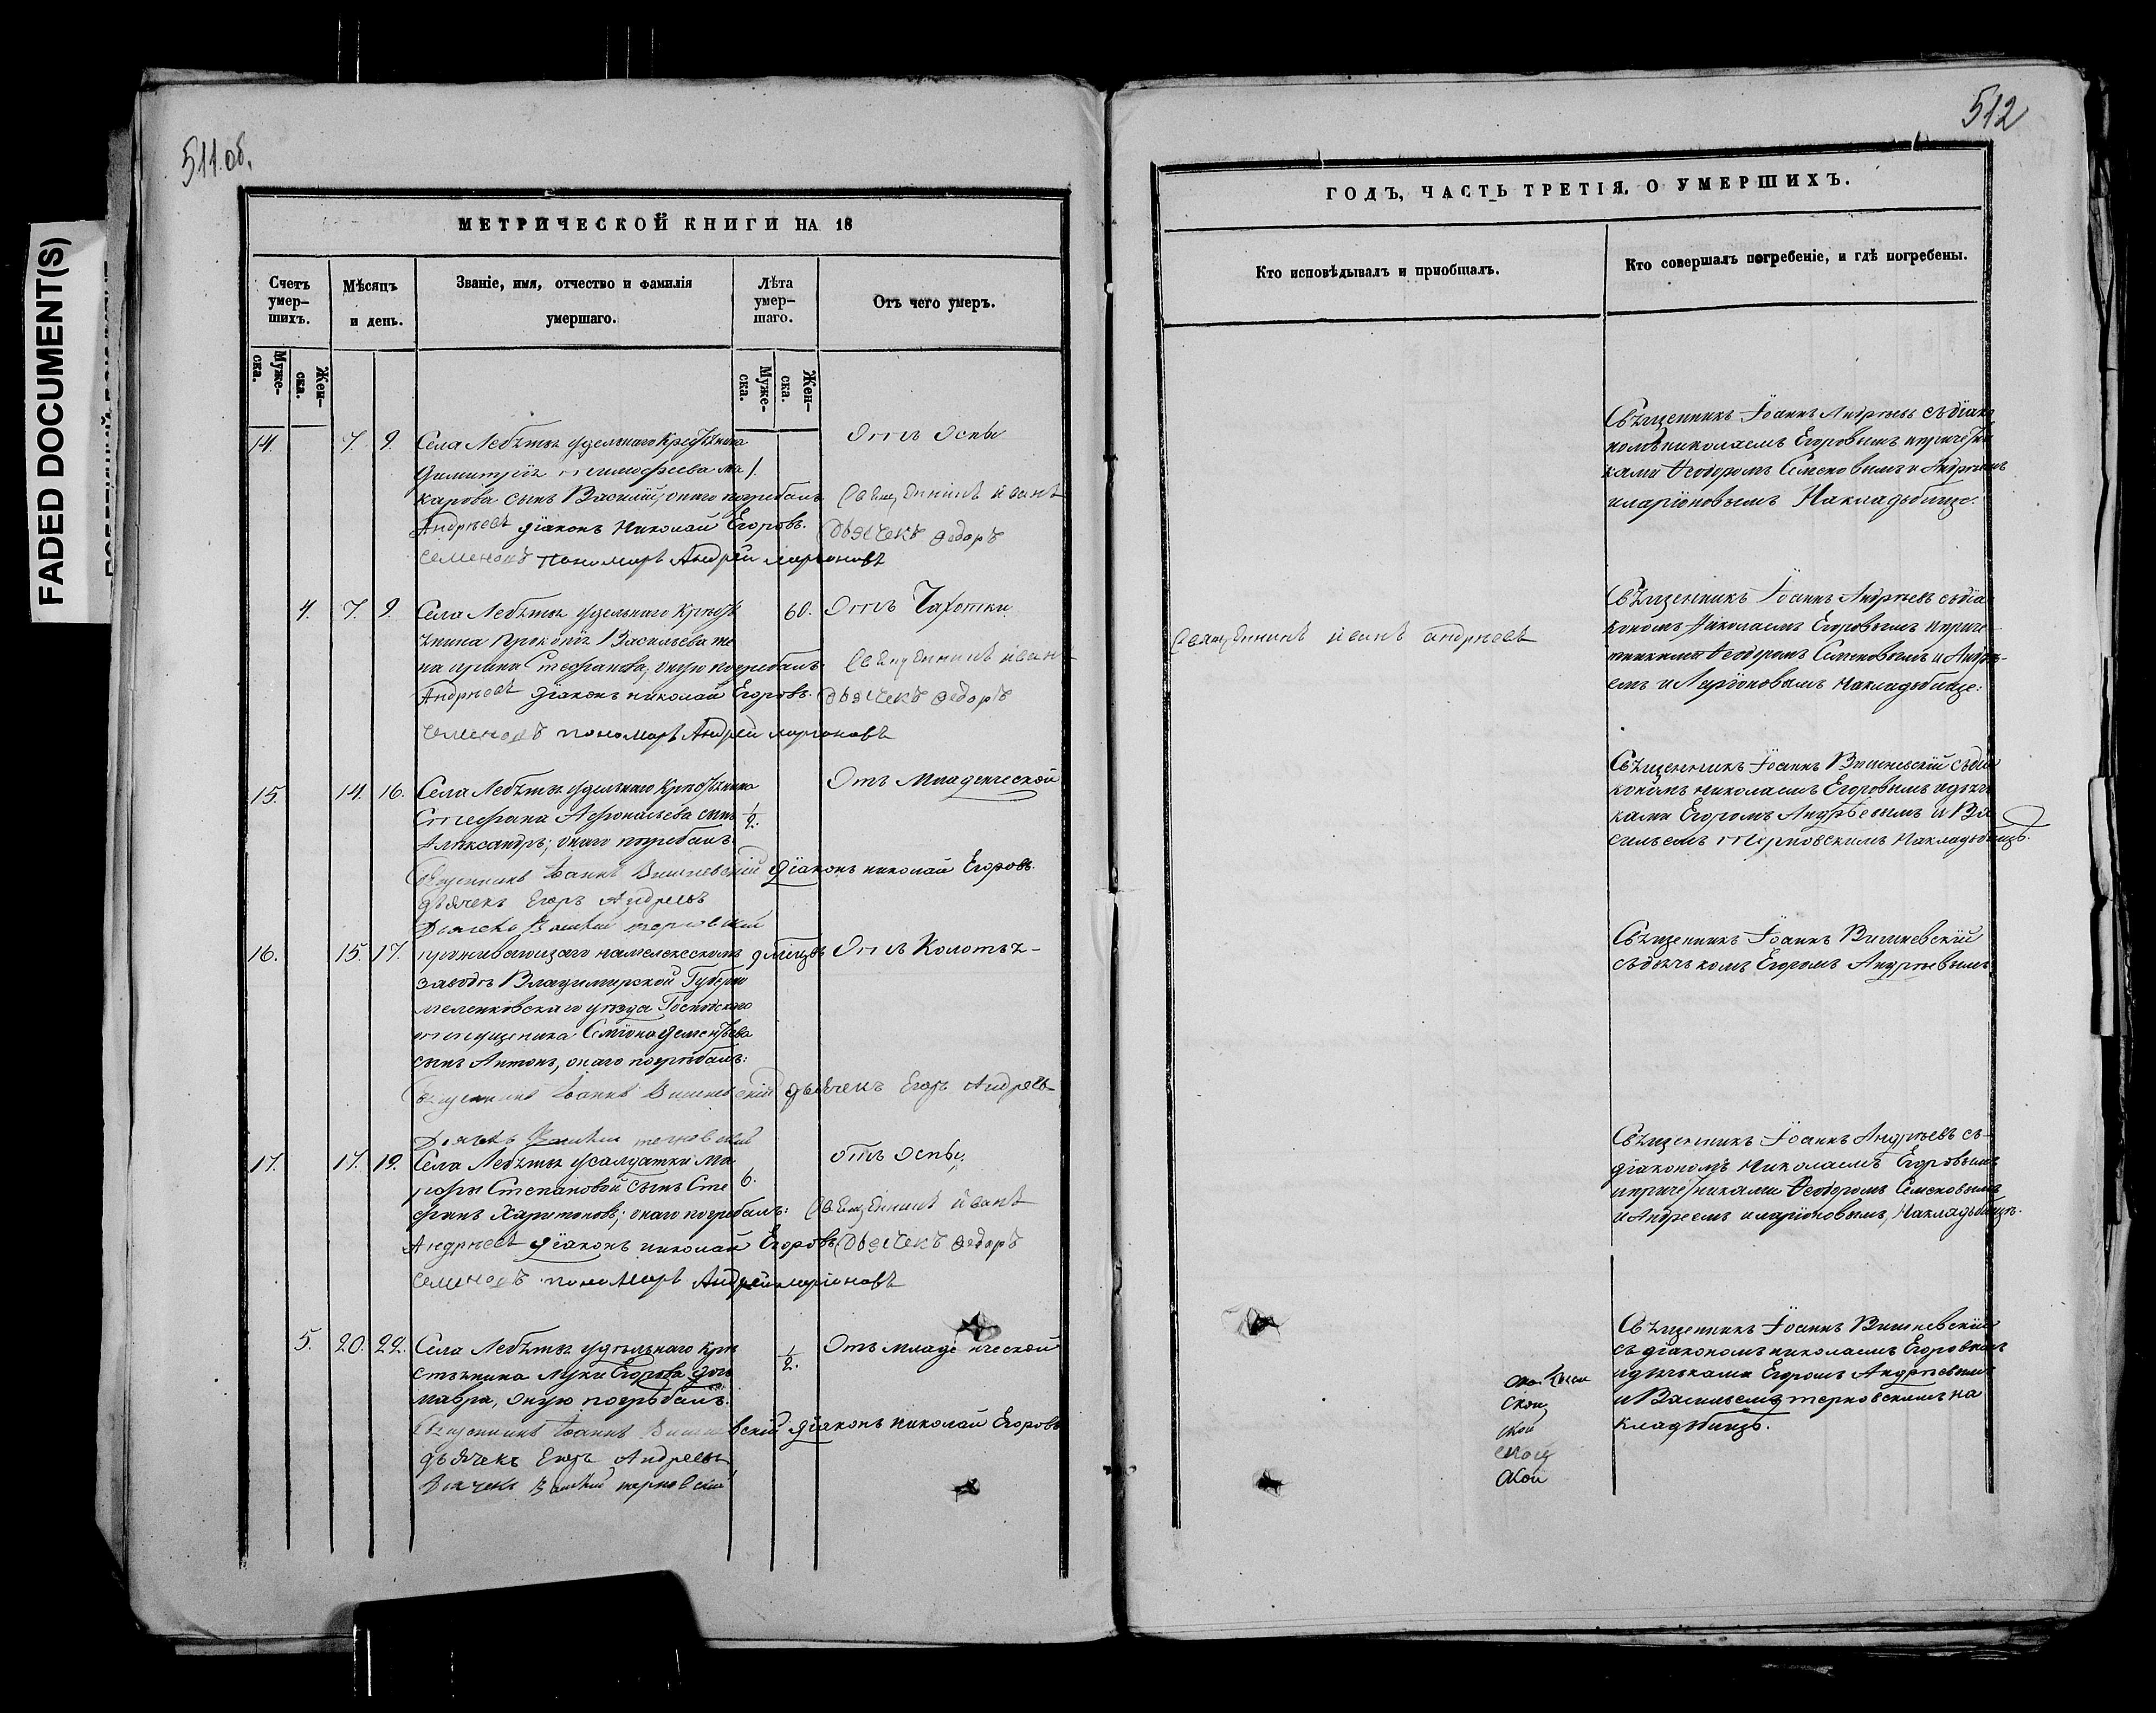 FADED DOCUMENT(S)
511.об.
МЕТРИЧЕСКОЙ КНИГИ НА 18
Счетъ умер-шихъ.
Мѣсяцъ и день.
Званіе, имя, отчество и фамилія умершаго.
Лѣта умер-шаго.
Отъ чего умеръ.
Муже-ска.
Жен-ска.
Муже-ска.
Жен-ска.
14. 7. 9. Села Лебѣтки удельнаго 1. Отъ Оспы
Димитрія Тимофеева Ма
карова сынъ Василій; онаго погребалъ Священникъ Иванъ
Андреевъ діаконъ Николай Егоровъ. Дьячекъ Федоръ
Семеновъ пономарь Андрей Ларионовъ
4. 7. 9. Села Лебѣтки удельнаго 60. Отъ Чахотки
Прокопія Васильева же
на Ирина Стефанова; оную погребалъ Священникъ Иван
Андреевъ Діаконъ Николай Егоровъ. Дьячекъ Федоръ
Семеновъ пономарь Андрей Ларионовъ
15. 14. 16. Села Лебѣтки удельнаго Отъ младенческой
Стефана сынъ 1/2.
Александръ; онаго погребалъ
Священникъ Іоаннъ Вишневскій Діаконъ Николай Егоровъ.
дьячекъ Егоръ Андреевъ
Дьячекъ Василий Терновский
16. 15. 17. проживающаго заводѣ Отъ Колотья
Владимирской Губерніи
Меленковскаго уѣзда
Семіона Дементьева
сынъ Антонъ, онаго погребалъ:
Священникъ Іоаннъ Вишневскій дьячекъ Егоръ Андреевъ
Дьячекъ Василий Терновский
17. 17. 19. Села Лебѣтки у салдатки Ма 6. отъ оспы
Степановой сынъ Сте
фанъ Харитоновъ; онаго погребалъ: Священникъ Иванъ
Андреевъ Діаконъ Николай Егоровъ Дьячекъ Федоръ
Семеновъ пономарь Андрей Ларионовъ
5. 20. 22. Села Лебѣтки удѣльнаго кре 1/2. Отъ младенческой
стьянина Луки Егорова дочь
Мавра, оную погребалъ:
Священникъ Іоаннъ Вишневский Діаконъ Николай Егоровъ
дьячекъ Егоръ Андреевъ
Дьячекъ Василий Терновский
512
ГОДЪ, ЧАСТЬ ТРЕТІЯ, О УМЕРШИХЪ.
Кто исповѣдывалъ и пріобщалъ.
Кто совершалъ погребеніе, и гдѣ погребены.
Священникъ Іоаннъ Андреевъ съ діако
номъ Николаемъ Егоровымъ и причетни
ками Феодоромъ Семеновымъ и Андреемъ
Иларіоновымъ На кладьбище.
Священникъ Иванъ Андреевъ
Священникъ Іоаннъ Андреевъ съ діа
кономъ Николаемъ Егоровымъ и приче
тниками Феодоромъ Семеновымъ и Андре-
емъ Иларіоновымъ На кладьбище:
Священникъ Іоаннъ Вишневскій съ діа
кономъ Николаемъ Егоровымъ и дьяч
ками Егоромъ Андреевымъ и Ва
сильемъ Терновскимъ На кладьбищѣ.
Священникъ Іоаннъ Вишневскій
съ дьячькомъ Егоромъ Андреевымъ
Священникъ Іоаннъ Андреевъ съ
діакономъ Николаемъ Егоровымъ
и причетниками Феодоромъ Семеновымъ
и Андреемъ Иларіоновымъ, На кладьбищѣ.
Священникъ Іоаннъ Вишневский
съ діакономъ Николаемъ Егоровымъ
и дьячьками Егоромъ Андреевымъ
и Васильемъ Терновскимъ на
кладьбищѣ.
скои
ской
ской